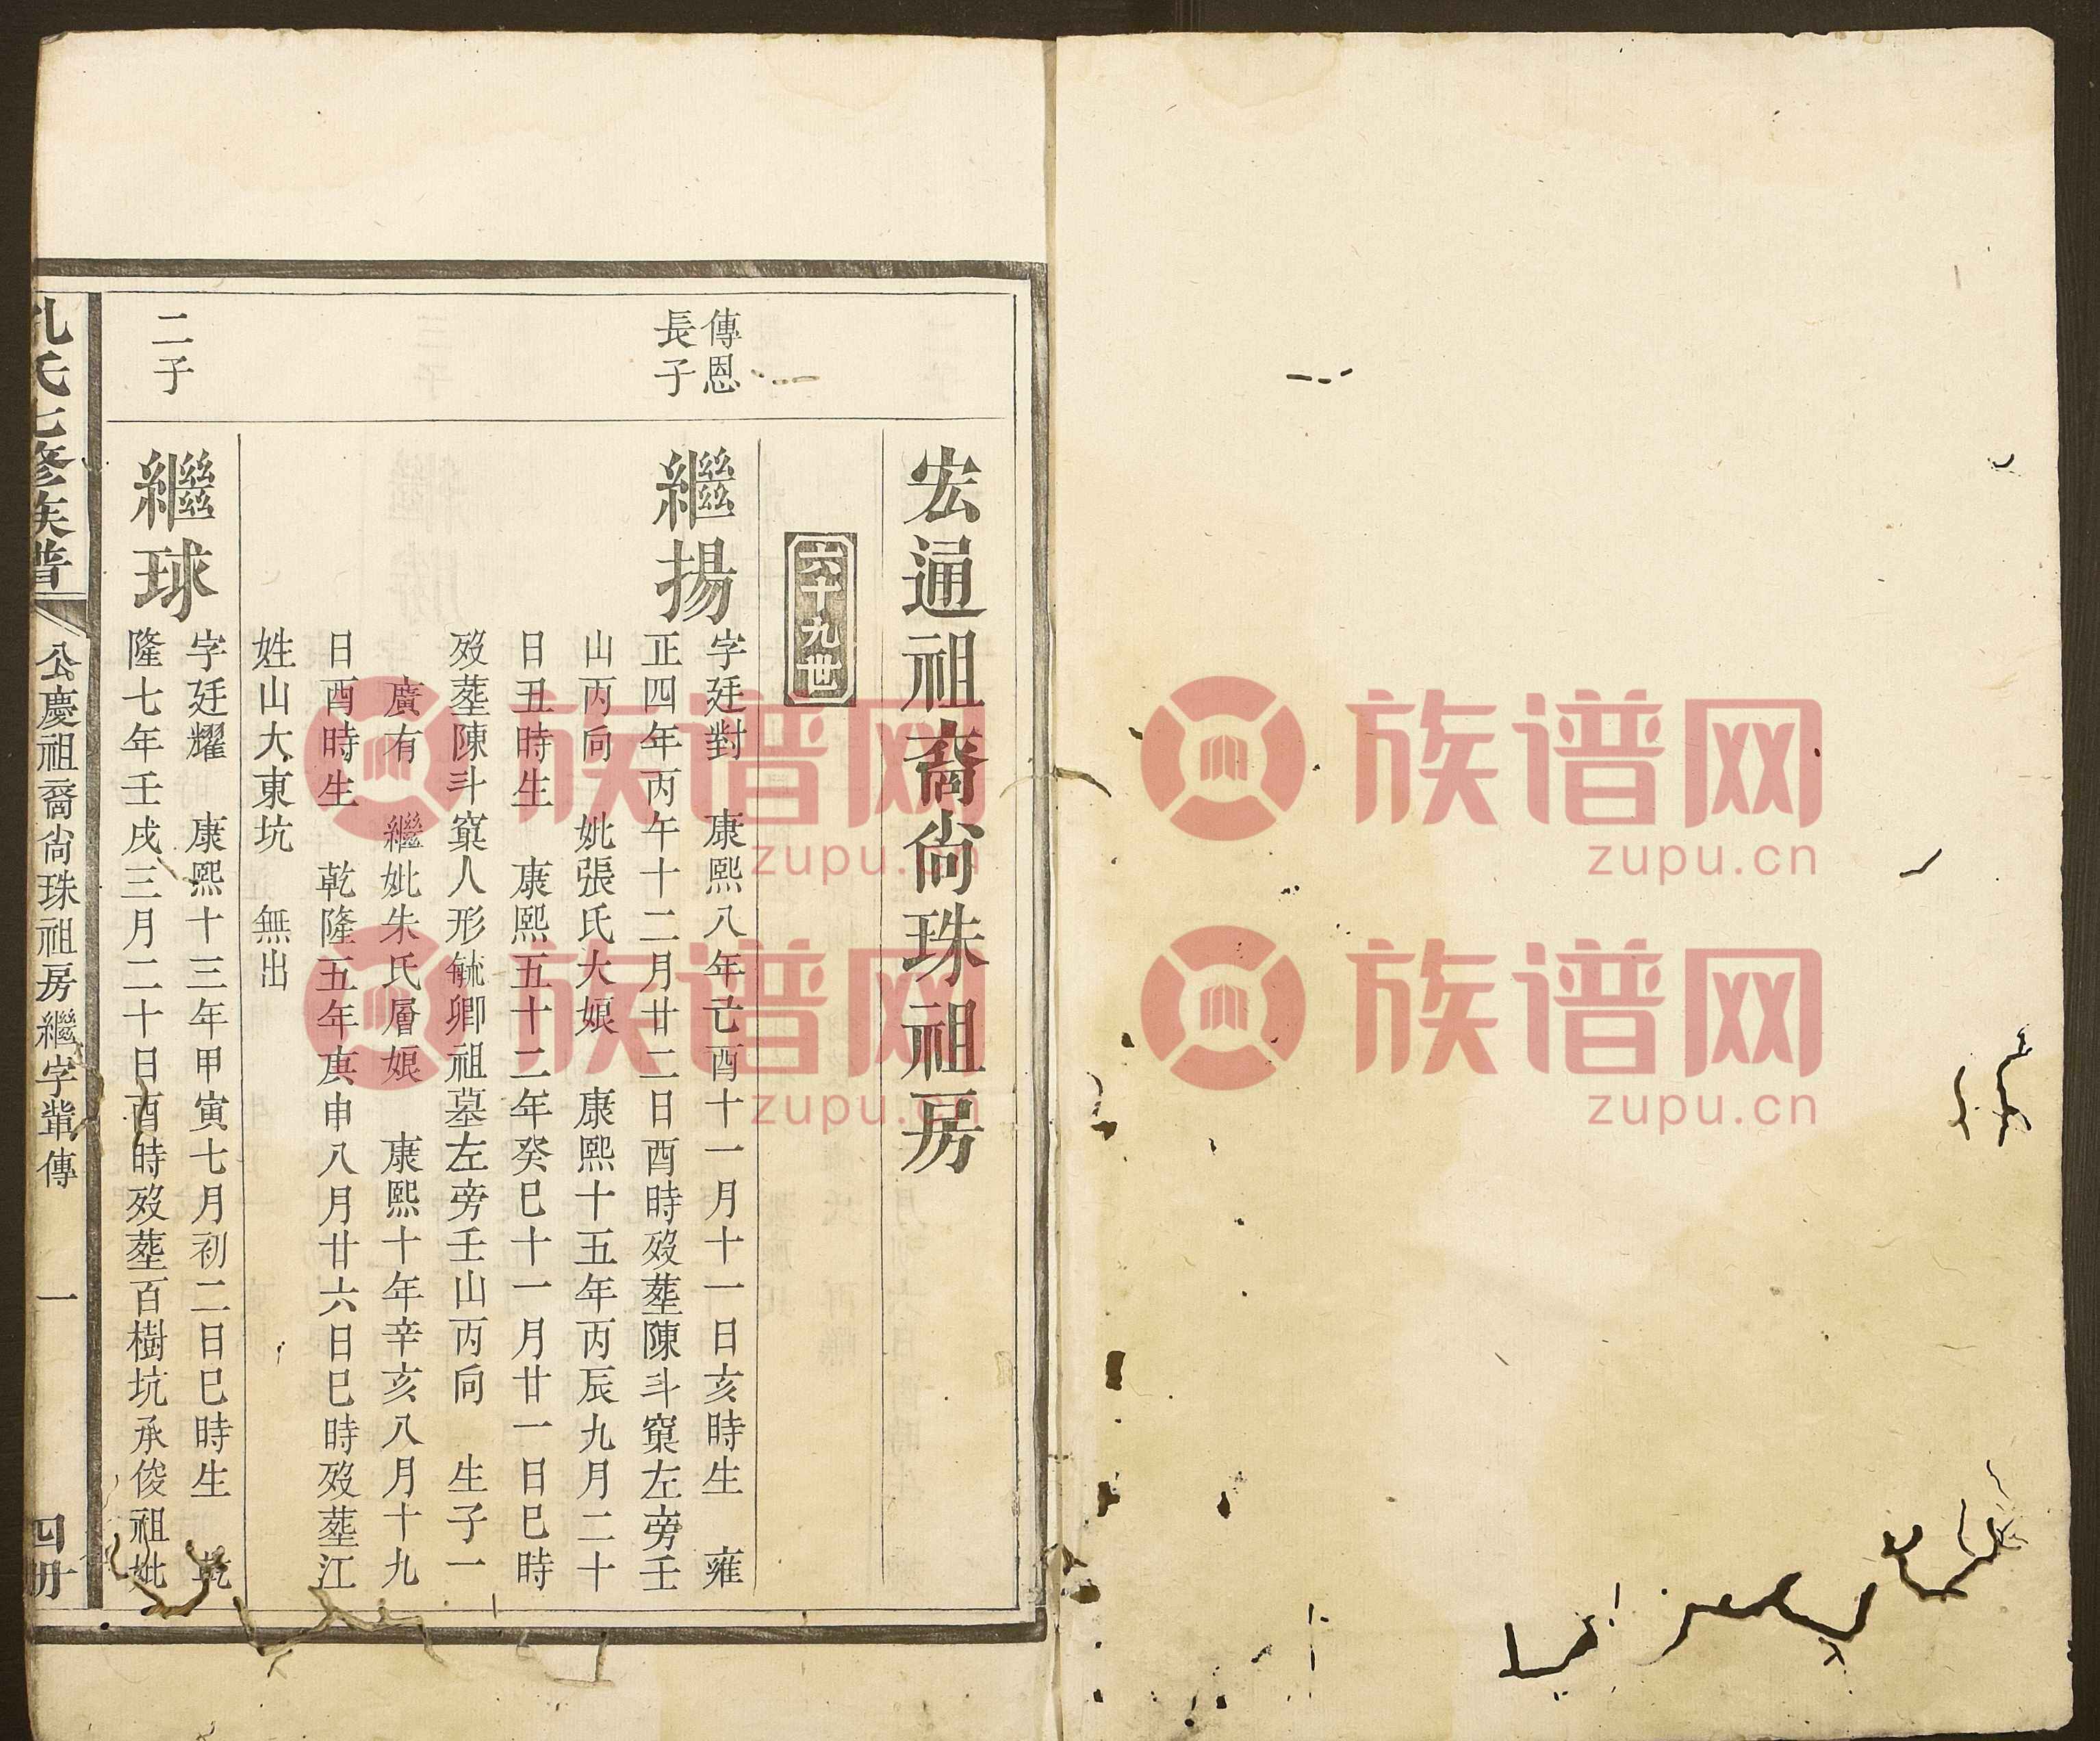 宏通祖裔尙珠祖房
六十九世
傳恩
長子
繼揚
字廷對 康熙八年己酉十一月十一日亥時生 雍
正四年丙午十二月廿二日酉時歿塟陳斗窠左旁壬
山丙向 妣張氏大娘 康熙十五年丙辰九月二十
日丑時生 康熙五十二年癸巳十一月廿一日巳時
歿塟陳斗窠人形毓卿祖墓左旁壬山丙向 生子一
廣有 繼妣朱氏層娘 康熙十年辛亥八月十九
日酉時生 乾隆五年庚申八月廿六日巳時歿塟江
姓山大東坑 無出
二子
繼球
字廷耀 康熙十三年甲寅七月初二日巳時生 乾
隆七年壬戌三月二十日酉時歿塟百樹坑承俊祖妣
孔氏七修族普
公慶祖裔尙珠祖房繼字輩傳 一 四册
族谱网
zupu.cn
族谱网
zupu.cn
族谱网
zupu.cn
族谱网
zupu.cn